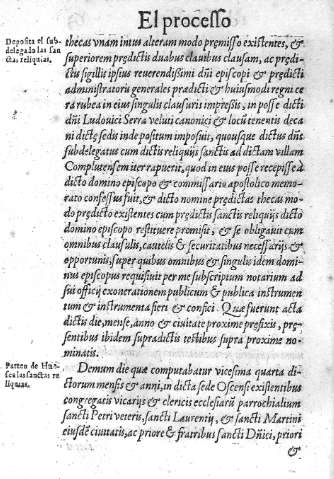 El processo
Deposita el sub-
delegado las san
ctas reliquias.
thecas vnam intus alteram modo premisso existentes, &
superiorem prędictis duabus clauibus clausam, ac prędi-
ctis sigillis ipsius reuerendissimi dñi episcopi & prędicti
administratoris generales pradicti & huiusmodi regni ce
ra rubea in eius singulis clausuris impressis, in posse dicti
dñi Ludouici Serra veluti canonici & locũtenentis deca
ni dictę sedis inde positum imposuit, quousque dictus dñs
subdelegatus cum dictis reliquijs sanctis ad dictam villam
Complutensem iter rapuerit, quod in eius posse recepisse à
dicto domino episcopo & commissario apostolico memo-
rato confessus fuit, & dicto nomine prędictas thecas mo-
do prędicto existentes cum prędictis sanctis reliquijs dicto
domino episcopo restituere promisit, & se obligauit cum
omnibus clausulis, cautelis & securitatibus necessarijs &
opportunis, super quibus omnibus & singulis idem domi-
nus episcopus requisiuit per me subscriptum notarium ad
sui officij exonerationem publicum & publica instrumen-
tum & instrumenta fieri & confici. Quæ fuerunt acta
dictis die, mense, anno & ciuitate proxime prefixis, prę-
sentibus ibidem supradictis testibus supra proxime no-
minatis.
Parten de Hues
ca las sanctas re
liquias.
Demum die quæ computabatur vicesima quarta di-
ctorum mensis & anni, in dicta sede Oscensi existentibus
congregatis vicarijs & clericis ecclesiarũ parrochialium
sancti Petri veteris, sancti Laurentij, & sancti Martini
eiusdẽ ciuitatis, ac priore & fratribus sancti Dñici, priori
&